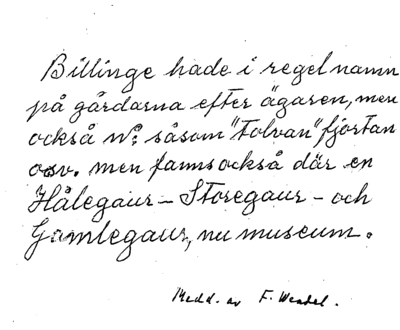 Billinge hade i regel namn
på gårdarna efter ägaren, men
också No: såsom "tolvan" fjortan
osv. men fanns också där en
Hålegaur – Storegaur – och
Gamlegaur, nu museum.
Medd. av F. Wendel.